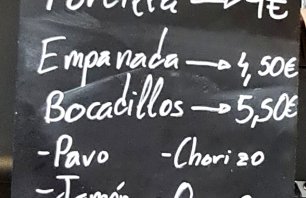 Tortilla → 4€
Empanada → 4,50€
Bocadillos → 5,50€
-Pavo -Chorizo
-Jamón